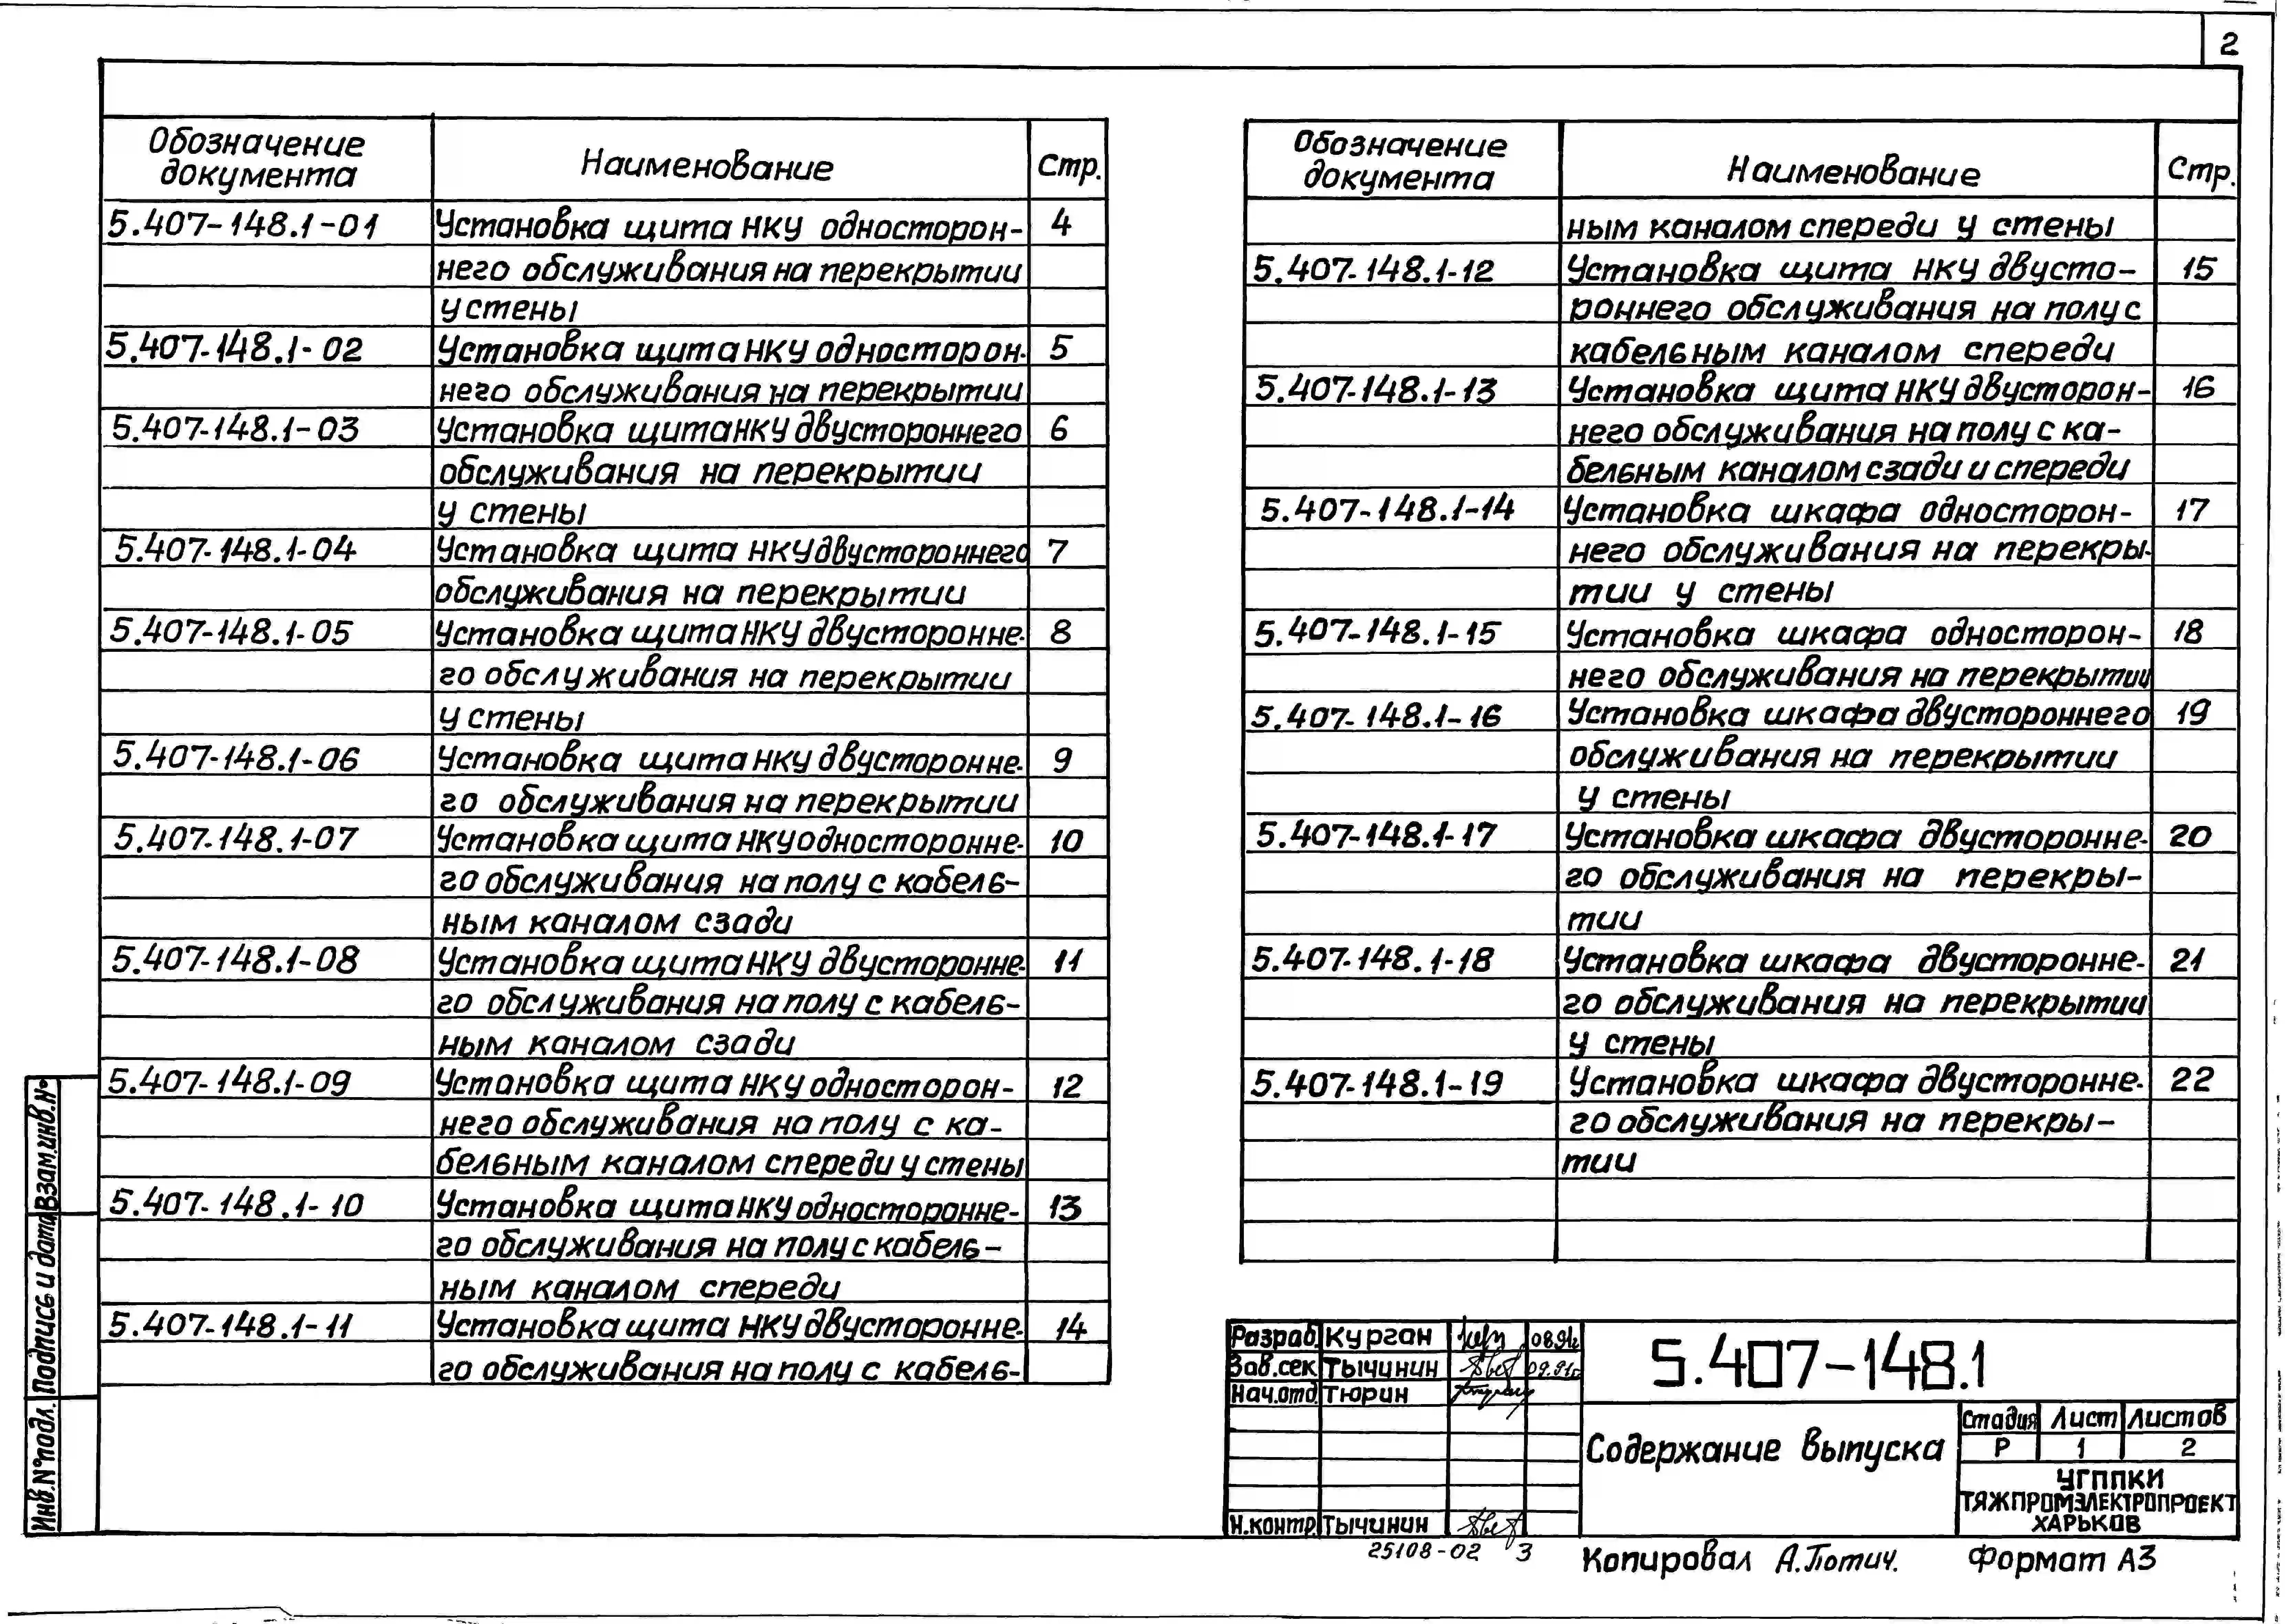 2
Обозначение документа Наименование Стр.
5.407-148.1-01 Установка щита НКУ односторон- 4
него обслуживания на перекрытии
у стены
5.407-148.1-02 Установка щита НКУ односторон- 5
него обслуживания на перекрытии
5.407-148.1-03 Установка щита НКУ двустороннего 6
обслуживания на перекрытии
у стены
5.407-148.1-04 Установка щита НКУ двустороннего 7
обслуживания на перекрытии
5.407-148.1-05 Установка щита НКУ двусторонне- 8
го обслуживания на перекрытии
у стены
5.407-148.1-06 Установка щита НКУ двусторонне- 9
го обслуживания на перекрытии
5.407-148.1-07 Установка щита НКУ односторонне- 10
го обслуживания на полу с кабель-
ным каналом сзади
5.407-148.1-08 Установка щита НКУ двусторонне- 11
го обслуживания на полу с кабель-
ным каналом сзади
5.407-148.1-09 Установка щита НКУ односторон- 12
него обслуживания на полу с ка-
бельным каналом спереди у стены
5.407-148.1-10 Установка щита НКУ односторонне- 13
го обслуживания на полу с кабель-
ным каналом спереди
5.407-148.1-11 Установка щита НКУ двусторонне- 14
го обслуживания на полу с кабель-
Обозначение документа Наименование Стр.
ным каналом спереди у стены
5.407-148.1-12 Установка щита НКУ двусто- 15
роннего обслуживания на полу с
кабельным каналом спереди
5.407-148.1-13 Установка щита НКУ двусторон- 16
него обслуживания на полу с ка-
бельным каналом сзади и спереди
5.407-148.1-14 Установка шкафа односторон- 17
него обслуживания на перекры-
тии у стены
5.407-148.1-15 Установка шкафа односторон- 18
него обслуживания на перекрытии
5.407-148.1-16 Установка шкафа двустороннего 19
обслуживания на перекрытии
у стены
5.407-148.1-17 Установка шкафа двусторонне- 20
го обслуживания на перекры-
тии
5.407-148.1-18 Установка шкафа двусторонне- 21
го обслуживания на перекрытии
у стены
5.407-148.1-19 Установка шкафа двусторонне- 22
го обслуживания на перекры-
тии
Инв.№ подл. Подпись и дата Взам.инв.№
Разраб. Курган 08.91г
Зав.сек Тычинин 09.91г
Нач.отд. Тюрин
Н.контр. Тычинин
5.407-148.1
Содержание выпуска
Стадия Лист Листов
Р 1 2
УГППКИ
ТЯЖПРОМЭЛЕКТРОПРОЕКТ
ХАРЬКОВ
25108-02 3
Копировал А.Потич. Формат А3